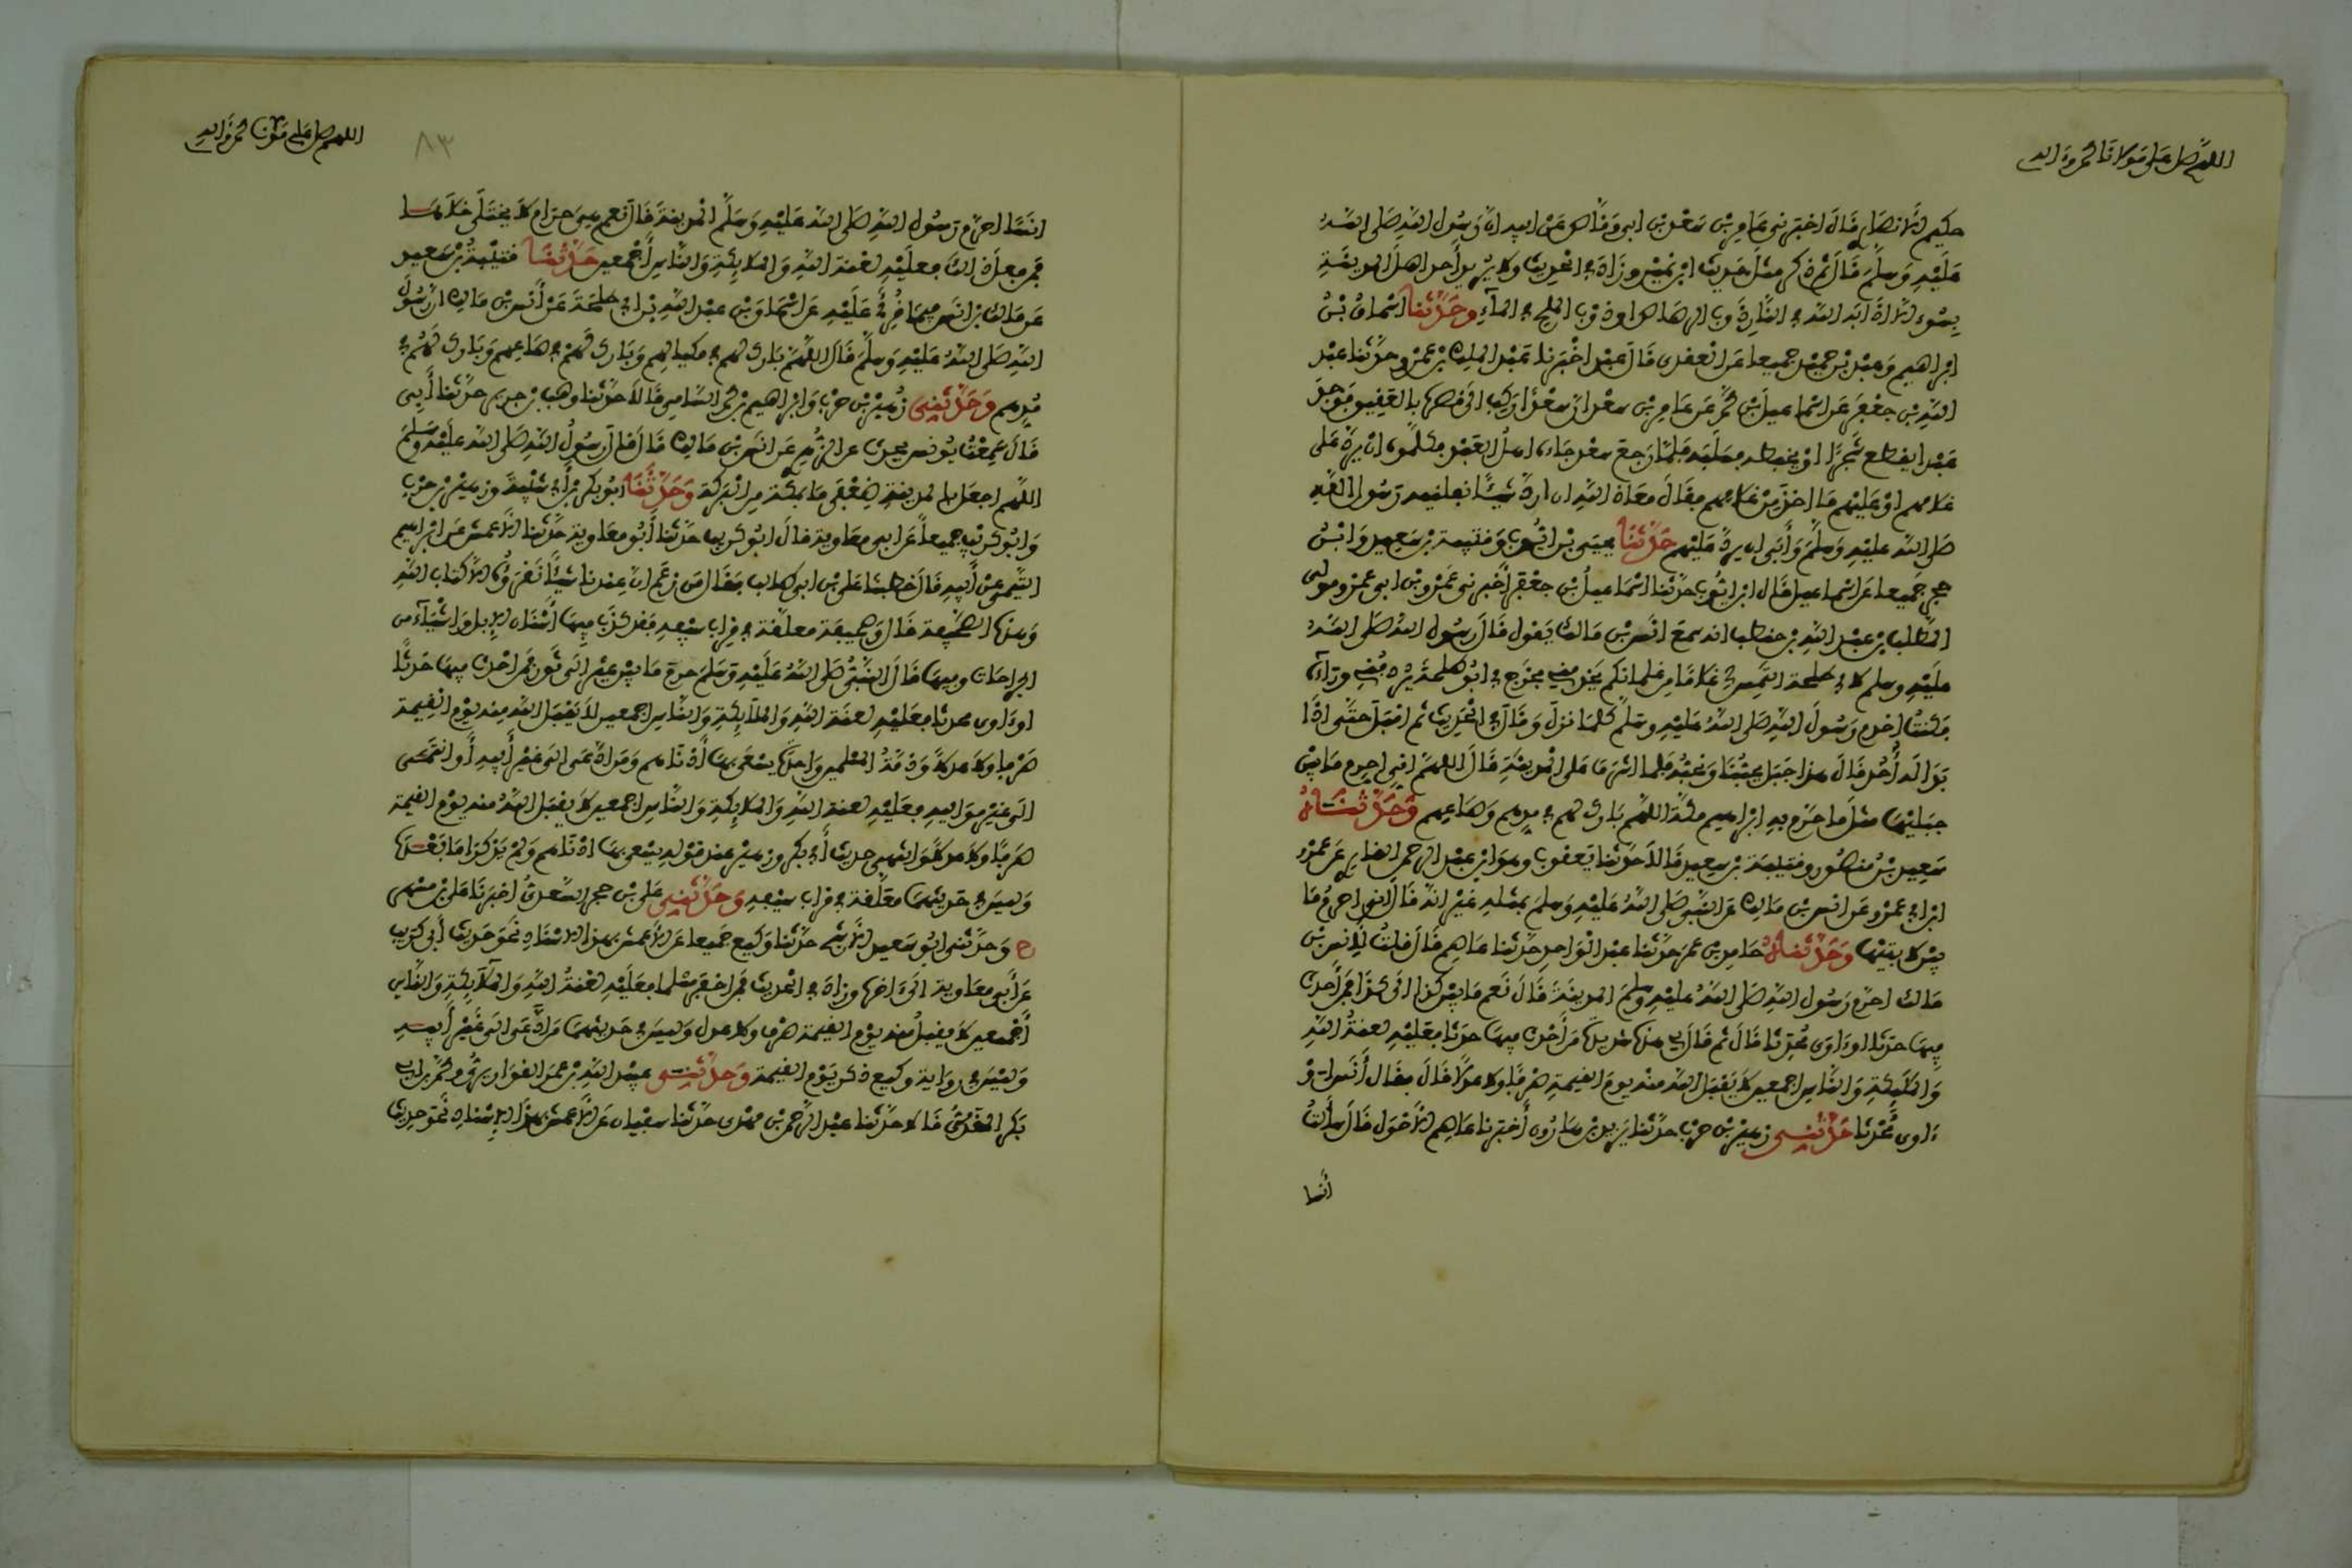 اللهم صل على مولانا محمد وءاله
حكيم الانصاري قال اخبرني عامر بن سعد بن ابي وقاص عن ابيه ان رسول الله صلى الله
عليه وسلم قال ثم ذكر مثل حديث ابن نمير وزاد في الحديث ولا يريد احد اهل المدينة
بسوء الا اذابه الله في النار ذوب الرصاص او ذوب الملح في الماء وحدثنا اسحاق بن
ابراهيم وعبد بن حميد جميعا عن العقدي قال عبد اخبرنا عبد الملك بن عمرو حدثنا عبد
الله بن جعفر عن اسماعيل بن محمد عن عامر بن سعد ان سعدا ركب الى قصره بالعقيق فوجد
عبدا يقطع شجرا او يخبطه فسلبه فلما رجع سعد جاءه اهل العبد فكلموه ان يرد على
غلامهم او عليهم ما اخذ من غلامهم فقال معاذ الله ان ارد شيئا نفلنيه رسول الله
صلى الله عليه وسلم وأبى ان يرد عليهم حدثنا يحيى بن ايوب وقتيبة بن سعيد وابن
حجر جميعا عن اسماعيل قال ابن ايوب حدثنا اسماعيل بن جعفر أخبرني عمرو بن ابي عمرو مولى
المطلب بن عبد الله بن حنطب انه سمع انس بن مالك يقول قال رسول الله صلى الله
عليه وسلم لابي طلحة التمس لي غلاما من غلمانكم يخدمني فخرج بي ابو طلحة يردفني وراءه
فكنت اخدم رسول الله صلى الله عليه وسلم كلما نزل وقال في الحديث ثم اقبل حتى اذا
بدا له أحد قال هذا جبل يحبنا ونحبه فلما اشرف على المدينة قال اللهم اني احرم ما بين
جبليها مثل ما حرم به ابراهيم مكة اللهم بارك لهم في مدهم وصاعهم وحدثناه
سعيد بن منصور وقتيبة بن سعيد قالا حدثنا يعقوب وهو ابن عبد الرحمن القاري عن عمرو
ابن ابي عمرو عن انس بن مالك عن النبي صلى الله عليه وسلم بمثله غير انه قال اني احرم ما
بين لابتيها وحدثناه حامد بن عمر حدثنا عبد الواحد حدثنا عاصم قال قلت لانس بن
مالك احرم رسول الله صلى الله عليه وسلم المدينة قال نعم ما بين كذا الى كذا فمن أحدث
فيها حدثا او ءاوى محدثا قال ثم قال لي هذه شديدة من أحدث فيها حدثا فعليه لعنة الله
والملئكة والناس اجمعين لا يقبل الله منه يوم القيمة صرفا ولا عدلا قال فقال أنس او
ءاوى محدثا حدثني زهير بن حرب حدثنا يزيد بن هارون أخبرنا عاصم الاحول قال سألت
أنسا
اللهم صل على مولانا محمد وءاله
٨٣
انسا احرم رسول الله صلى الله عليه وسلم المدينة قال نعم هي حرام لا يختلى خلاها
فمن فعل ذلك فعليه لعنة الله والملائكة والناس أجمعين حدثنا قتيبة بن سعيد
عن مالك بن انس فيما قرئ عليه عن اسحاق بن عبد الله بن ابي طلحة عن أنس بن مالك ان رسول
الله صلى الله عليه وسلم قال اللهم بارك لهم في مكيالهم وبارك لهم في صاعهم وبارك لهم في
مدهم وحدثني زهير بن حرب وابراهيم بن محمد السامي قالا حدثنا وهب بن جرير حدثنا أبي
قال سمعت يونس يحدث عن الزهري عن انس بن مالك قال قال رسول الله صلى الله عليه وسلم
اللهم اجعل بالمدينة ضعفي ما بمكة من البركة وحدثنا ابو بكر بن أبي شيبة وزهير بن حرب
وابو كريب جميعا عن ابي معاوية قال ابو كريب حدثنا أبو معاوية حدثنا الاعمش عن ابراهيم
التيمي عن أبيه قال خطبنا علي بن ابي طالب فقال من زعم ان عندنا شيئا نقرؤه الا كتاب الله
وهذه الصحيفة قال وصحيفة معلقة في قراب سيفه فقد كذب فيها أسنان الابل وأشياء من
الجراحات وفيها قال النبي صلى الله عليه وسلم حرم ما بين عير الى ثور فمن احدث فيها حدثا
او ءاوى محدثا فعليه لعنة الله والملائكة والناس اجمعين لا يقبل الله منه يوم القيمة
صرفا ولا عدلا وذمة المسلمين واحدة يسعى بها أدناهم ومن ادعى الى غير أبيه أو انتمى
الى غير مواليه فعليه لعنة الله والملائكة والناس اجمعين لا يقبل الله منه يوم القيمة
صرفا ولا عدلا وانتهى حديث أبي بكر وزهير عند قوله يسعى بها ادناهم ولم يذكرا ما بعده
وليس في حديثهما معلقة في قراب سيفه وحدثني علي بن حجر السعدي اخبرنا علي بن مسهر
ح وحدثني ابو سعيد الاشج حدثنا وكيع جميعا عن الاعمش بهذا الاسناد نحو حديث أبي كريب
عن أبي معاوية الى ءاخره وزاد في الحديث فمن اخفر مسلما فعليه لعنة الله والملائكة والناس
أجمعين لا يقبل منه يوم القيمة صرف ولا عدل وليس في حديثهما من ادعى الى غير أبيه
وليس في رواية وكيع ذكر يوم القيمة وحدثني عبيد الله بن عمر القواريري ومحمد بن ابي
بكر المقدمي قالا حدثنا عبد الرحمن بن مهدي حدثنا سفيان عن الاعمش بهذا الاسناد نحو حديث